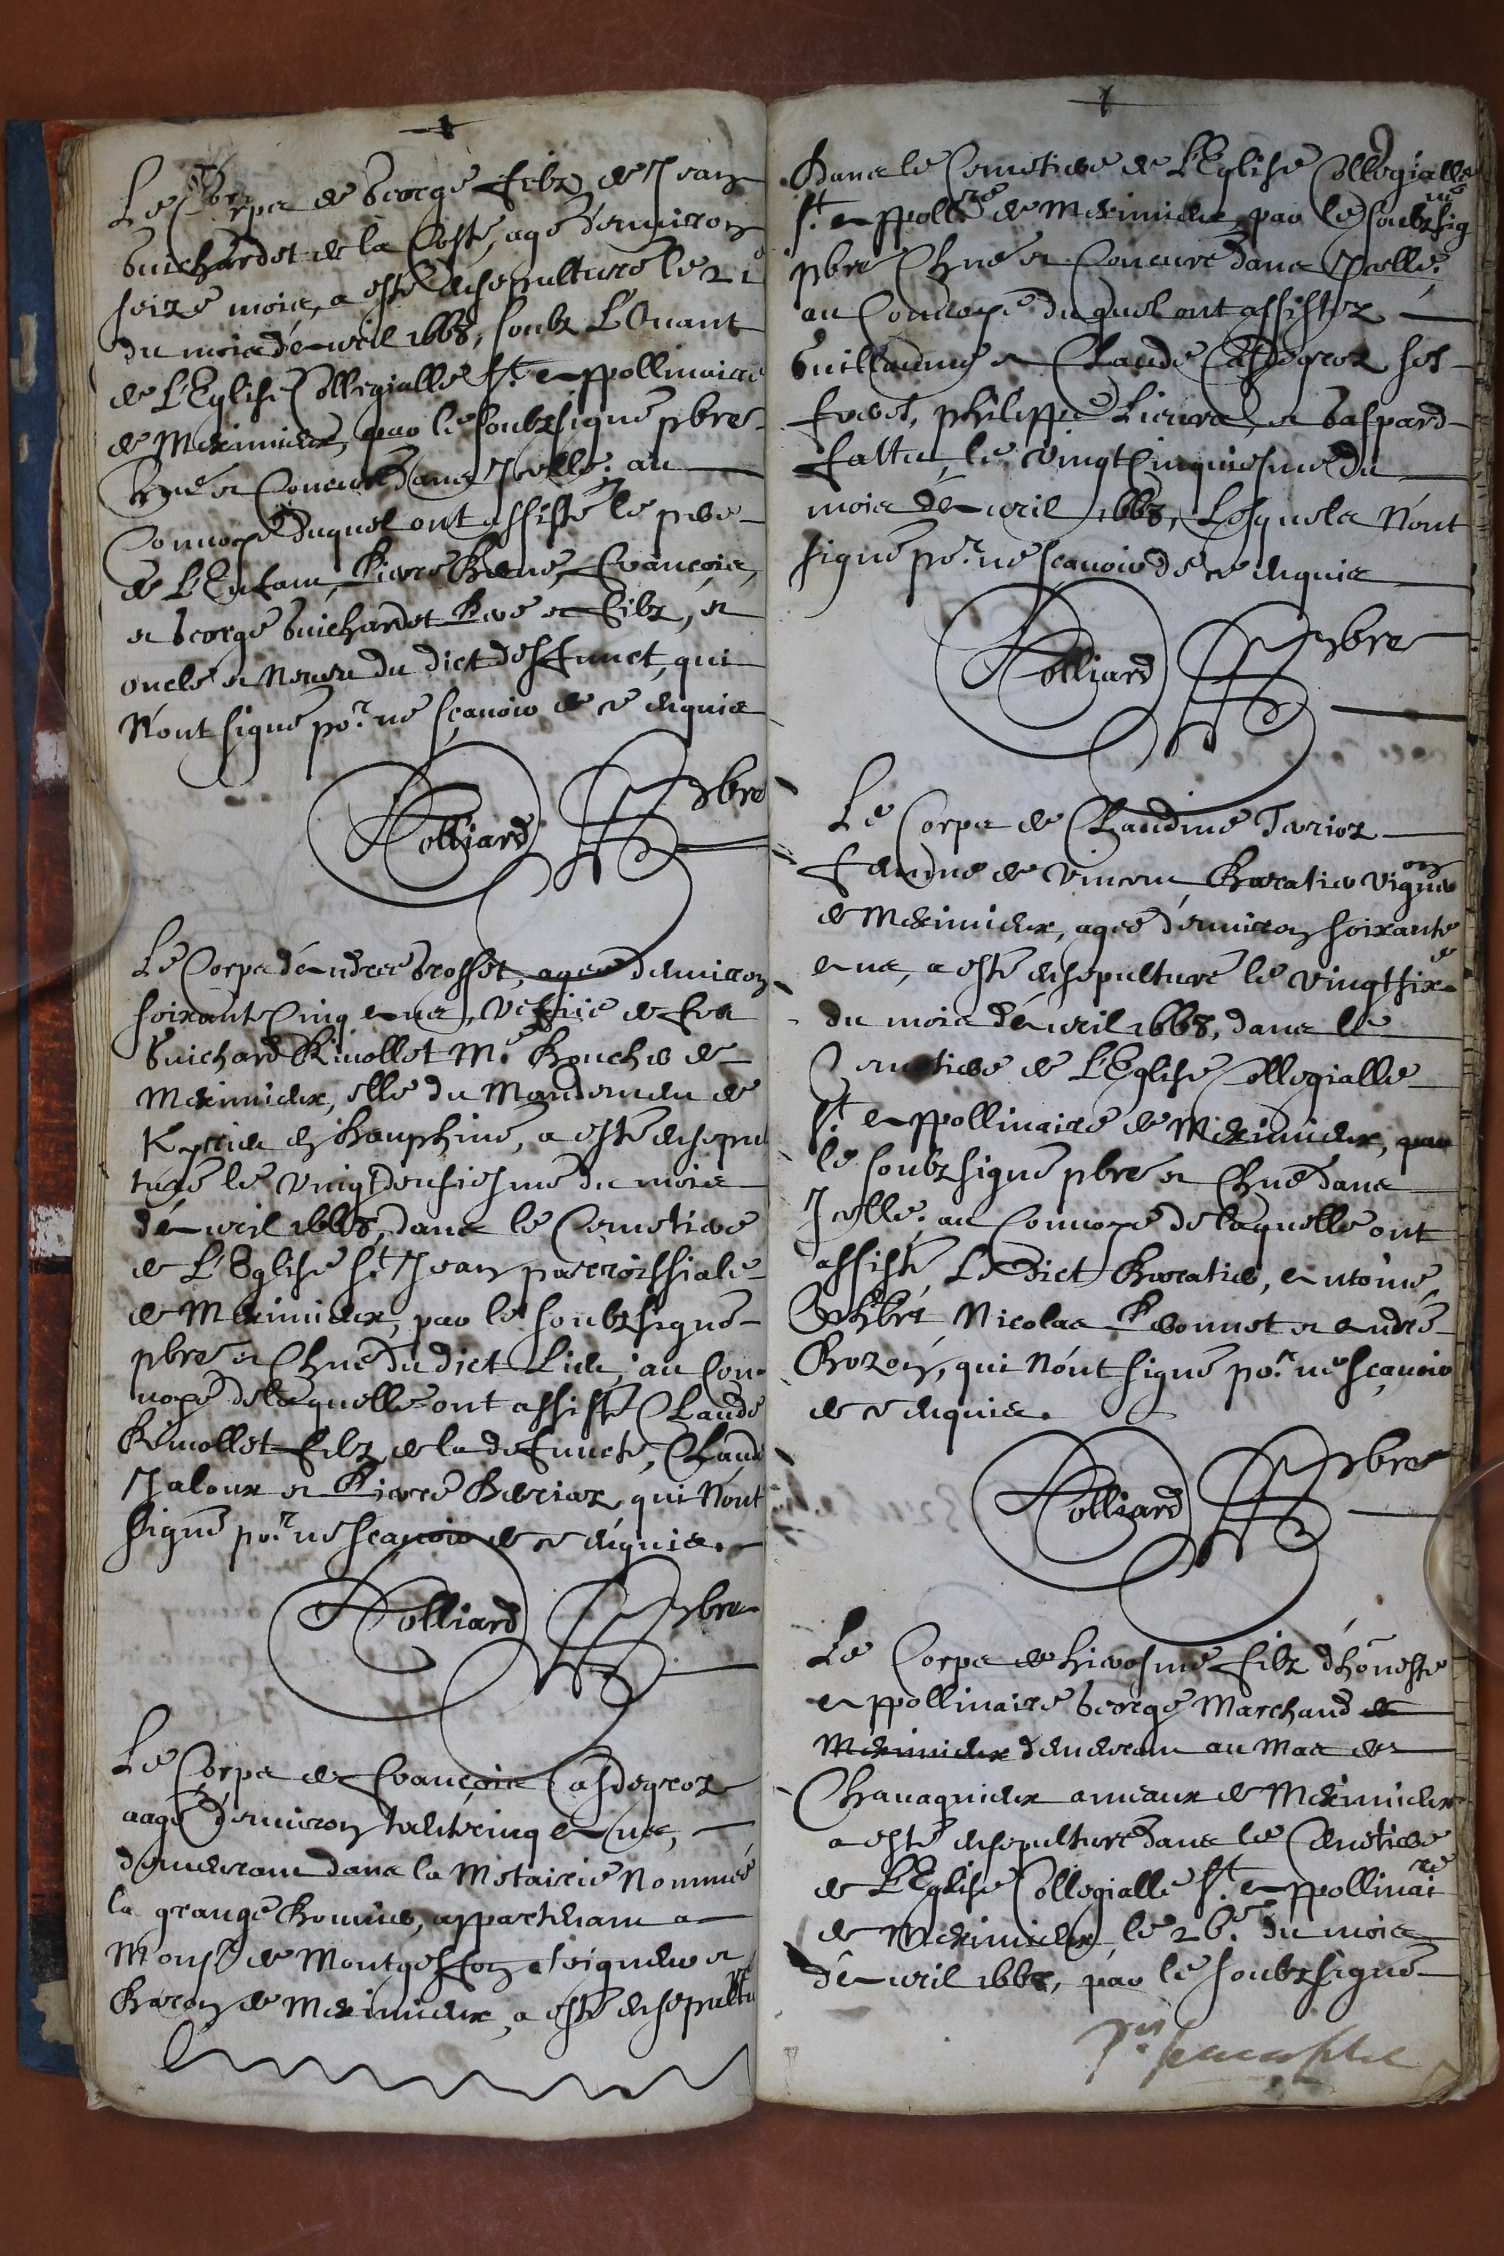 Le Corps de George filz de Jean
Guichardet de la Coste, agé d'enuiron
seize mois, a esté ensepulturé le 21e
du mois d'Avril 1668, soubz L'Ouant
de L'Eglise Collegialle St. Appollinaire
de Meximieux, par le soubzsigné pbre
Chne et Concuré dans Jcelle. au
Conuoye duquel ont assisté le pere
de L'Enfant, Pierre René, François,
et George Guichardet Pere et filz, et
oncle et Neueu du dict deffunct, qui
N'ont signé por. ne sçauoir de ce enquis
Rolliard pbre
Le Corps d'Andree Grosset, agee d'enuiron
soixante Cinq Ans, vefue de feu
Guichard Riuollet Me. Boucher de
Meximieux, elle du Mandement de
en Dauphiné, a esté ensepul
turé le vingtdeusiesme du mois
d'Avril 1668, dans le Cemetiere
de L'Eglise St. Jean parroissiale
de Meximieux, par le soubzsigné
pbre et Chne du dict Lieu. au Con
uoye de laquelle ont assisté Claude
Riuollet filz de la defuncte, Claude
Jaloux et Pierre Berliaz, qui N'ont
signé por. ne sçauoir de ce enquis.
Rolliard pbre
Le Corps de François Casdegroz
aagé d'enuiron trente cinq Ans,
demeurant dans la Metairie Nommée
la grange Bouuier, appartenant a
Monsr de Montgeffon seigneur et
Baron de Meximieux, a esté ensepultu
ré
Dans le Cemetiere de L'Eglise Collegialle
St. Appollre de Meximieux, par le soubzsig
né
pbre Chne et Concuré dans Jcelle.
au Conuoye duquel ont assistez
Guillaume et Claude Casdegroz ses
freres, philippe Lieura, et Gaspard
fattu, le vingt Cinquiesme du
mois d'Avril 1668, Lesquels N'ont
signé por. ne sçauoir de ce enquis
Rolliard pbre
Le Corps de Claudine Terioz
femme de Vincent Baratier Vigneron
de Meximieux, agee d'enuiron soixante
Ans, a esté ensepulturé le vingtsixe
du mois d'Avril 1668, dans le
Cemetiere de L'Eglise Collegialle
St. Appollinaire de Meximieux, par
le soubzsigné pbre et Chne dans
Jcelle. au Conuoye de laquelle ont
assisté, Le dict Baratier, Antoine
Nicolas Peronnet et André
Bozon, qui N'ont signé por. ne sçauoir
de ce enquis.
Rolliard pbre
Le Corps de Hierosme filz d'honneste
Appollinaire George Marchand de
Meximieux demeurant au Mas de
Chauagnieux anneaux de Meximieux
a esté ensepulturé dans le Cemetiere
de L'Eglise Collegialle St. Appollinai
re
de Meximieux, le 26e. du mois
d'Avril 1668, par le soubzsigné